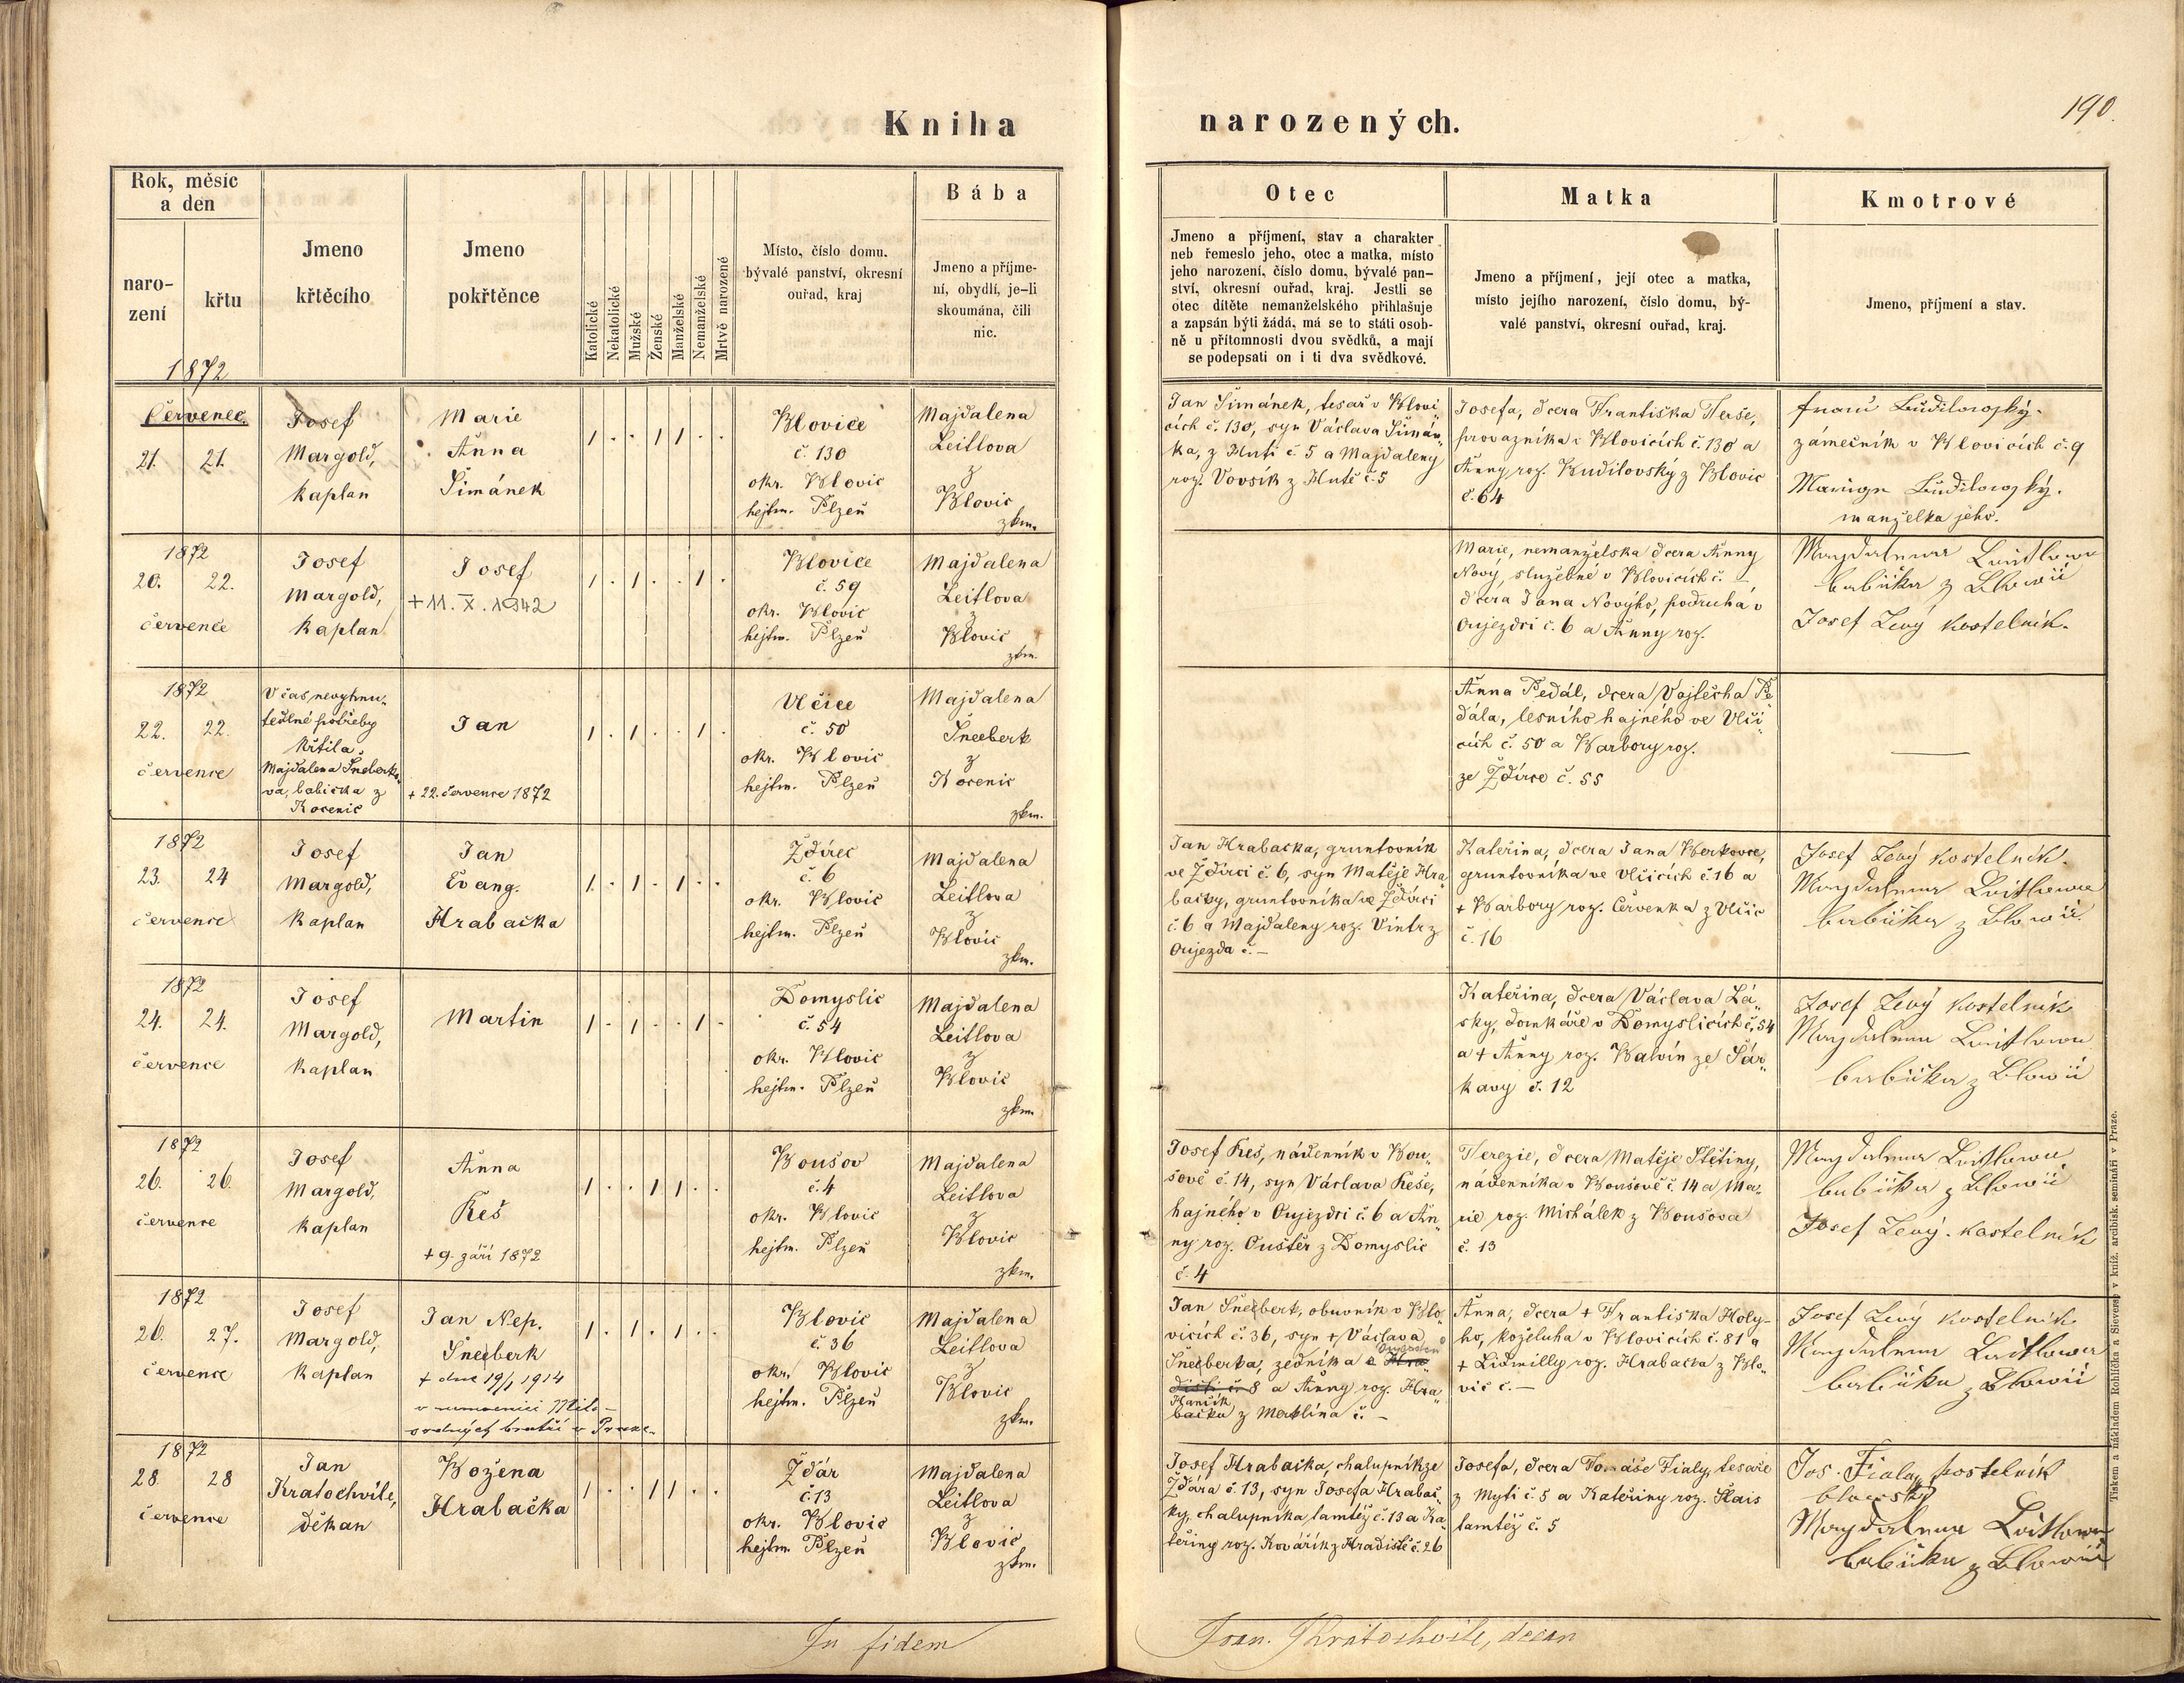 Kniha
narozených.
190.
Rok, měsíc
a den
naro-
zení
křtu
Jmeno
křtěcího
Jmeno
pokřtěnce
Katolické
Nekatolické
Mužské
Ženské
Manželské
Nemanželské
Mrtvě narozené
Místo, číslo domu.
bývalé panství, okresní
ouřad, kraj
Bába
Jmeno a příjme-
ní, obydlí, je-li
skoumána, čili
nic.
Otec
Jmeno a příjmení, stav a charakter
neb řemeslo jeho, otec a matka, místo
jeho narození, číslo domu, bývalé pan-
ství, okresní ouřad, kraj. Jestli se
otec dítěte nemanželského přihlašuje
a zapsán býti žádá, má se to státi osob-
ně u přítomnosti dvou svědků, a mají
se podepsati on i ti dva svědkové.
Matka
Jmeno a příjmení, její otec a matka,
místo jejího narození, číslo domu, bý-
valé panství, okresní ouřad, kraj.
Kmotrové
Jmeno, příjmení a stav.
1872
Červenec.
21. 21.
Josef
Margold,
kaplan
Marie
Anna
Šimánek
1 . . 1 1 . .
Blovice
č. 130
okr. Blovic
hejtm. Plzeň
Majdalena
Leitlova
z
Blovic
zkm.
Jan Šimánek, tesař v Blovi„
cích č. 130, syn Václava Šimán„
ka, z Huti č. 5 a Majdaleny
roz. Vovsík z Hutě č. 5
Josefa, dcera Františka Terše,
provazníka v Blovicích č. 130 a
Anny roz. Budilovský z Blovic
č. 64
Franc Budilowský.
zámečník v Blovicích č. 9
Budilowský.
manželka jeho.
1872
20. 22.
července
Josef
Margold,
kaplan
Josef
+ 11. X. 1942
1 . 1 . . 1 .
Blovice
č. 59
okr. Blovic
hejtm. Plzeň
Majdalena
Leitlova
z
Blovic
zkm.
Marie, nemanželska dcera Anny
Nový, služebné v Blovicích č. –,
dcera Jana Nového, podruha v
Oujezdci č. 6 a Anny roz.
Magdalena Leitlowa
babička z Blowic
Josef Levý kostelník.
1872
22. 22.
července
V čas nevyhnu„
telné potřeby
křtila
Majdalena Šneberko„
va, babička z
Kocenic
Jan
+ 22. července 1872
1 . 1 . . 1 .
Vlčice
č. 50
okr. Blovic
hejtm. Plzeň
Majdalena
Šneeberk
z
Kocenic
zkm.
Anna Pedál, dcera Vojtěcha Pe„
dála, lesního hajného ve Vlči„
cích č. 50 a Barbory roz.
ze Ždírce č. 55
1872
23. 24
července
Josef
Margold,
kaplan
Jan
Evang.
Hrabačka
1 . 1 . 1 . .
Ždírec
č. 6
okr. Blovic
hejtm. Plzeň
Majdalena
Leitlova
z
Blovic
zkm.
Jan Hrabačka, gruntovník
ve Ždírci č. 6, syn Matěje Hra„
bačky, gruntovníka ve Ždírci
č. 6 a Majdaleny roz. Vintr z
Oujezda č. –
Kateřina, dcera Jana Berkovce,
gruntovníka ve Vlčicích č 16 a
+ Barbory roz. Červenka z Vlčic
č. 16
Josef Levý kostelník.
Magdalena Leitlowa
babička z Blowic
1872
24. 24.
července
Josef
Margold,
kaplan
Martin
1 . 1 . . 1 .
Domyslic
č. 54
okr. Blovic
hejtm. Plzeň
Majdalena
Leitlova
z
Blovic
zkm.
Kateřina, dcera Václava Lá„
sky, domkáře v Domyslicích č. 54
a + Anny roz. Balvín ze Šár„
kavy č. 12
Josef Levý kostelník
Magdalena Leitlowa
babička z Blowic
1872
26. 26.
července
Josef
Margold,
kaplan
Anna
Keš
+ 9. září 1872
1 . . 1 1 . .
Boušov
č. 4
okr. Blovic
hejtm. Plzeň
Majdalena
Leitlova
z
Blovic
zkm.
Josef Keš, nádenník v Bou„
šově č. 14, syn Václava Keše,
hajného v Oujezdci č. 6 a An„
ny roz. Oustěr z Domyslic
č. 4
Terezie, dcera Matěje Štětiny,
nádenníka v Boušově č. 14 a Ma„
rie roz. Michálek z Boušova
č. 13
Magdalena Leitlowa
babička z Blowic
Josef Levý. kostelník
1872
26. 27.
července
Josef
Margold,
kaplan
Jan Nep.
Šneeberk
+ dne 19/1 1914
v nemocnici Milo–
srdných bratří v Praze.
1 . 1 . 1 . .
Blovic
č. 36
okr. Blovic
hejtm. Plzeň
Majdalena
Leitlova
z
Blovic
zkm.
Jan Šneeberk, obuvník v Blo„
vicích č. 36, syn + Václava
Šneeberka, zedníka
8 a Anny roz. Hra„
bačka z Merklína č. –
Anna, dcera + Františka Holy-
ho, koželuha v Blovicích č. 81 a
+ Lidmilly roz. Hrabačka z Blo„
vic č. –
Josef Levý kostelník
Magdalena Leitlowa
babička z Blowic
1872
28. 28
července
Jan
Kratochvile,
děkan
Božena
Hrabačka
1 . . 1 1 . .
Ždár
č. 13
okr. Blovic
hejtm. Plzeň
Majdalena
Leitlova
z
Blovic
zkm.
Josef Hrabačka, chalupník ze
Ždára č. 13, syn Josefa Hrabač„
ky, chalupníka tamtéž č. 13 a Ka„
teřiny roz. Kovářík z Hradiště č. 26
Josefa, dcera Tomáše Fialy, tesaře
z Myti č. 5 a Kateřiny roz. Hais
tamtéž č. 5
Jos. Fiala, kostelník
blovický
Magdalena Leitlowa
babička z Blowic
In fidem
Joan. Kratochvile, decan
Tiskem a nákladem Rohlíčka a Sieversa v kníž. arcibisk. semináři v Praze.